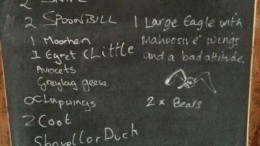 2 SPOONBILL
1 Moorhen
1 Egret (Little
Avocets
Greylag geese
∞ Lapwings
2 Coot
Shovellor Duck
1 Large Eagle with
Mahoosive wings
and a bad attitude.
2 x Bears